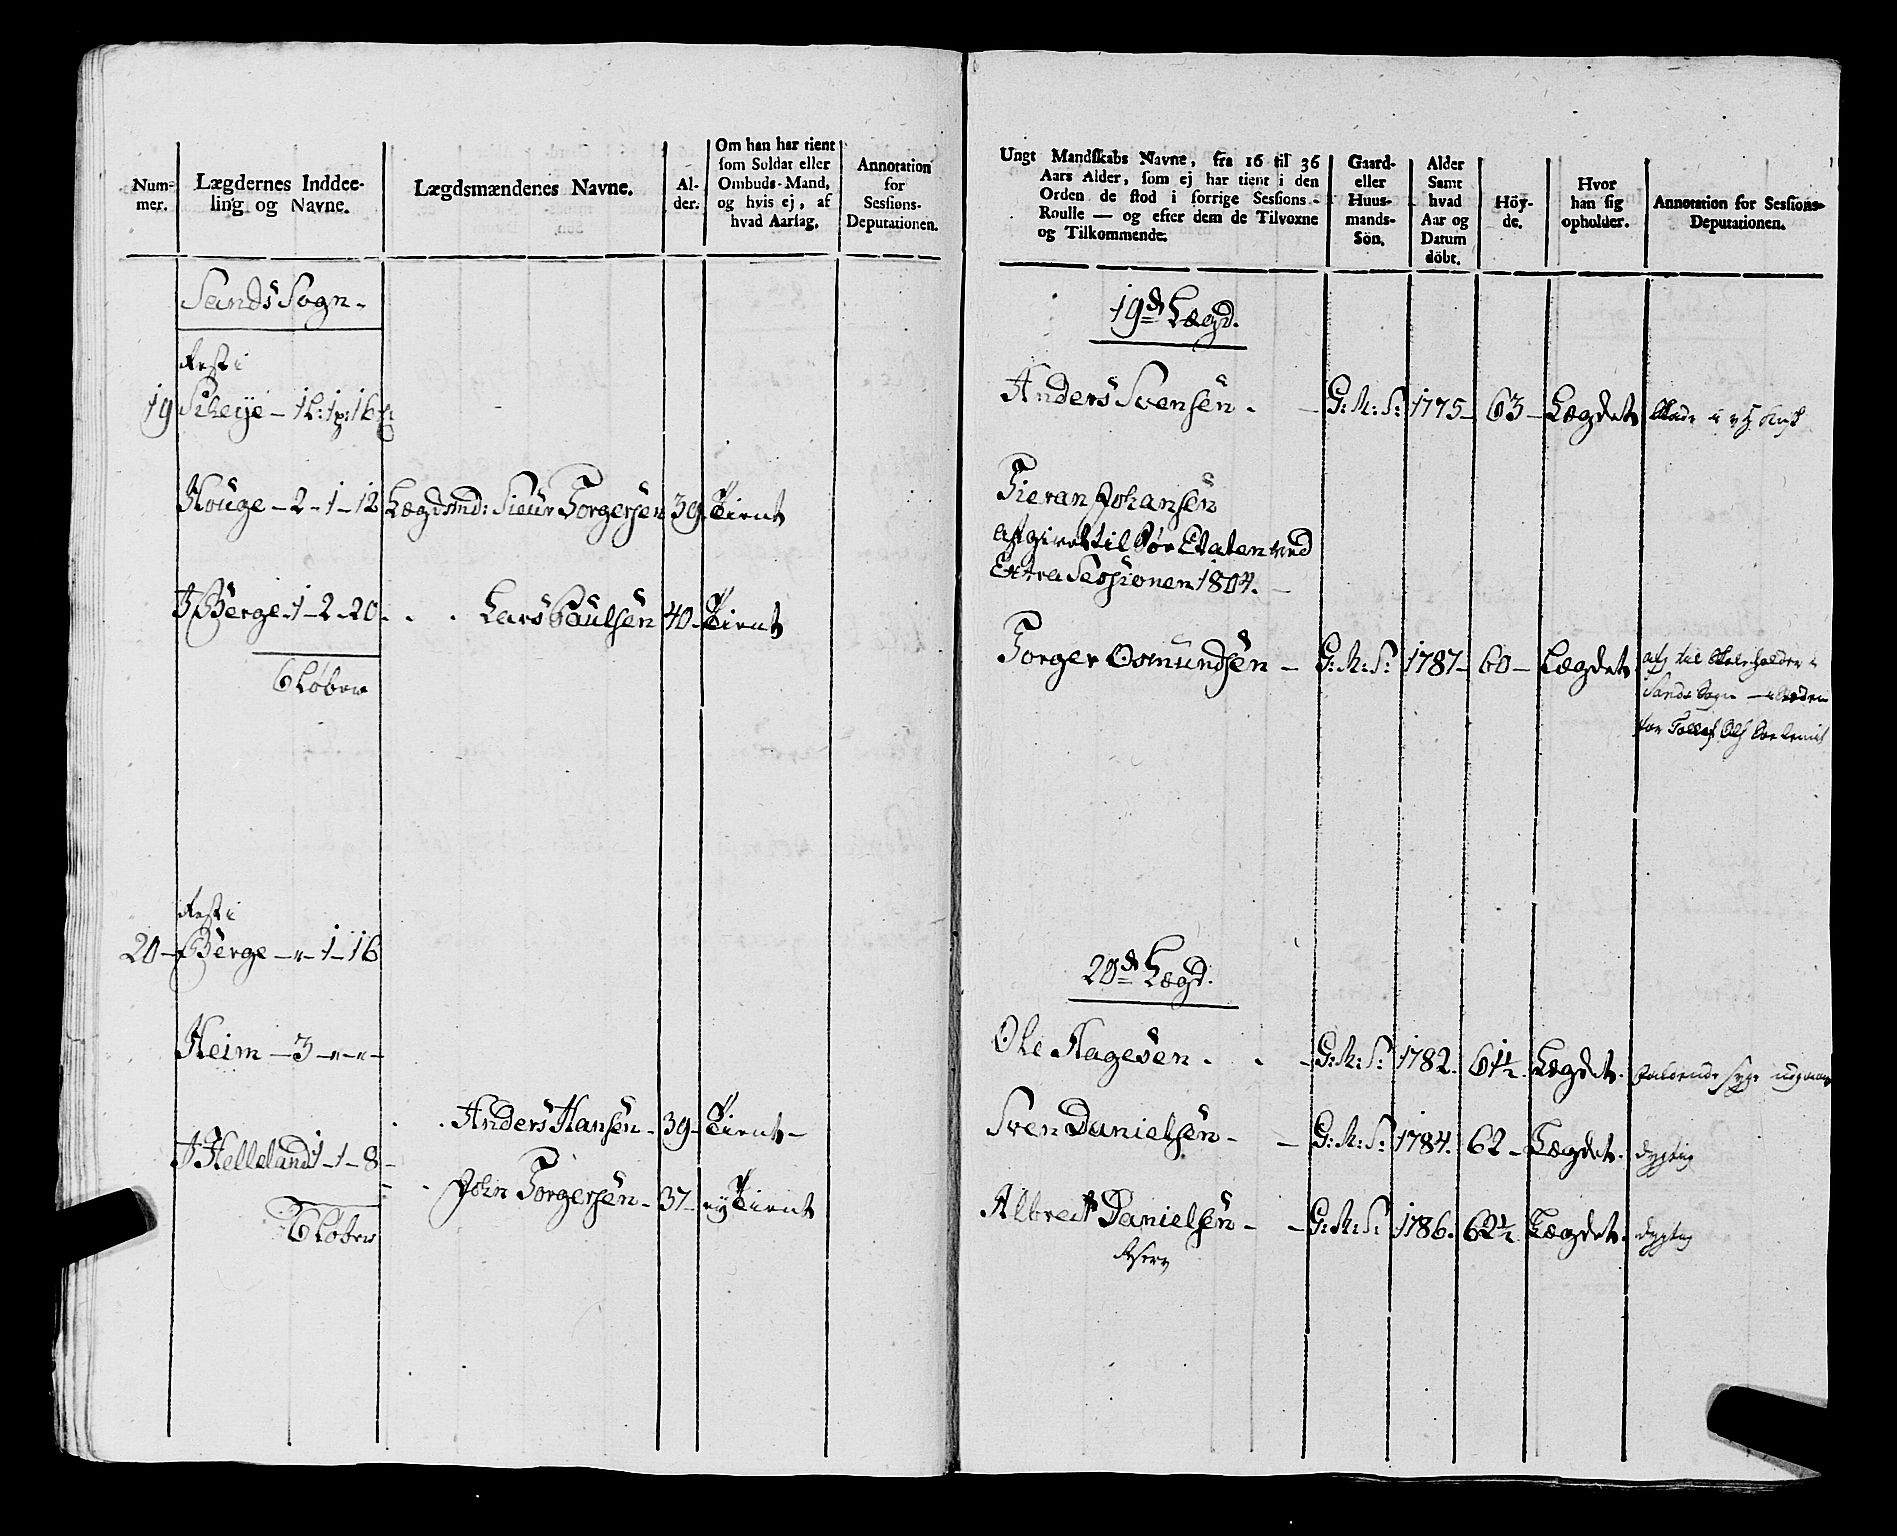 Num-
mer.
Lægdernes Inddee-
ling og Navne.
Lægdsmændenes Navne.
Al-
der.
Om han har tient
som Soldat eller
Ombuds-Mand,
og hvis ej, af
hvad Aarsag.
Annotation
for
Sessions-
Deputationen.
Sands Sogn.
Rest i
19 Scheije - 1 L: 1 p: 16
Houge - 2 - 1 - 12 Lægdsmd: Sieur Torgersen 39. Tient
I Berge - 1 - 2 - 20 . . . Lars Paulsen 40. Tient
6 Løber
Rest i
20 - Berge - " - 1 - 16
Heim - 3 - " - " -
. . Anders Hansen - 39 - Tient -
I Helleland 1 - 1 - 8 -
John Torgersen - 37 - ey Tient
6 Løber
Ungt Mandskabs Navne, fra 16 til 36
Aars Alder, som ej har tient i den
Orden de stod i forrige Sessions-
Roulle — og efter dem de Tilvoxne
og Tilkommende.
Gaard-
eller
Huus-
mands-
Søn.
Alder
Samt
hvad
Aar og
Datum
döbt.
Höy-
de.
Hvor
han sig
opholder.
Annotation for Sessions-
Deputationen.
19de Lægd.
Anders Svensen . - G: M: S: 1775 - 63 - Lægdet
Tieran Johansen
Afgivet til Søe Etaten ved
Extra Sessionen 1804. -
Torger Osmundsen - G: M: S: 1787 - 60 - Lægdet.
Sands Sogn
for
20de Lægd.
Ole Hagesen . . - G: M: S: 1782. 61 1/2. Lægdet. faldende Syge
Sven Danielsen - - G: M: S: 1784. 62 - Lægdet. dygtig
Albrect Danielsen - - G: M: S: 1786. 62 1/2 Lægdet. dygtig